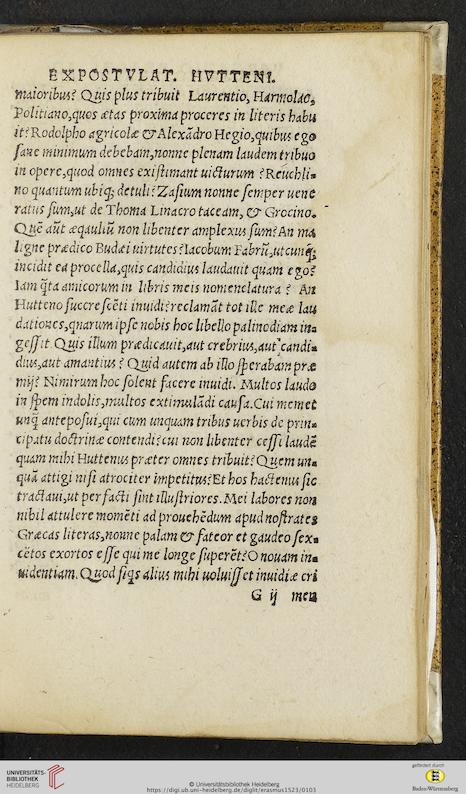 EXPOSTVLAT. HVTTENI.
maioribus? Quis plus tribuit Laurentio, Harmolao,
Politiano, quos ætas proxima proceres in literis habu
it? Rodolpho agricolæ & Alexãdro Hegio, quibus ego
sane minimum debebam, nonne plenam laudem tribuo
in opere, quod omnes existimant uicturum? Reuchli-
no quantum ubiq; detuli? Zasium nonne semper uene
ratus sum, ut de Thoma Linacro taceam, & Grocino.
Quẽ aũt æqualiũ non libenter amplexus sum? An ma
ligne prædico Budæi uirtutes? Iacobum Fabrũ, utcunq;
incidit ea procella, quis candidius laudauit quam ego?
Iam q̃ta amicorum in libris meis nomenclatura? An
Hutteno succrescẽti inuidi? reclamãt tot illæ meæ lau
dationes, quarum ipse nobis hoc libello palinodiam in-
gessit. Quis illum prædicauit, aut crebrius, aut candi-
dius, aut amantius? Quid autem ab illo sperabam præ
mij? Nimirum hoc solent facere inuidi. Multos laudo
in spem indolis, multos extimulãdi causa. Cui memet
unq̃ anteposui, qui cum unquam tribus uerbis de prin-
cipatu doctrinæ contendi? cui non libenter cessi laudẽ
quam mihi Huttenus præter omnes tribuit? Quem un-
quã attigi nisi atrociter impetitus? Et hos hactenus sic
tractaui, ut per facti sint illustriores. Mei labores non
nihil attulere momẽti ad prouehẽdum apud nostrates
Græcas literas, nonne palam & fateor et gaudeo sex-
cẽtos exortos esse qui me longe superẽt? O nouam in-
uidentiam. Quod siq̃s alius mihi uoluisset inuidiæ cri
G ij men
UNIVERSITÄTS-
BIBLIOTHEK
HEIDELBERG
© Universitätsbibliothek Heidelberg
https://digi.ub.uni-heidelberg.de/diglit/erasmus1523/0103
gefördert durch
Baden-Württemberg